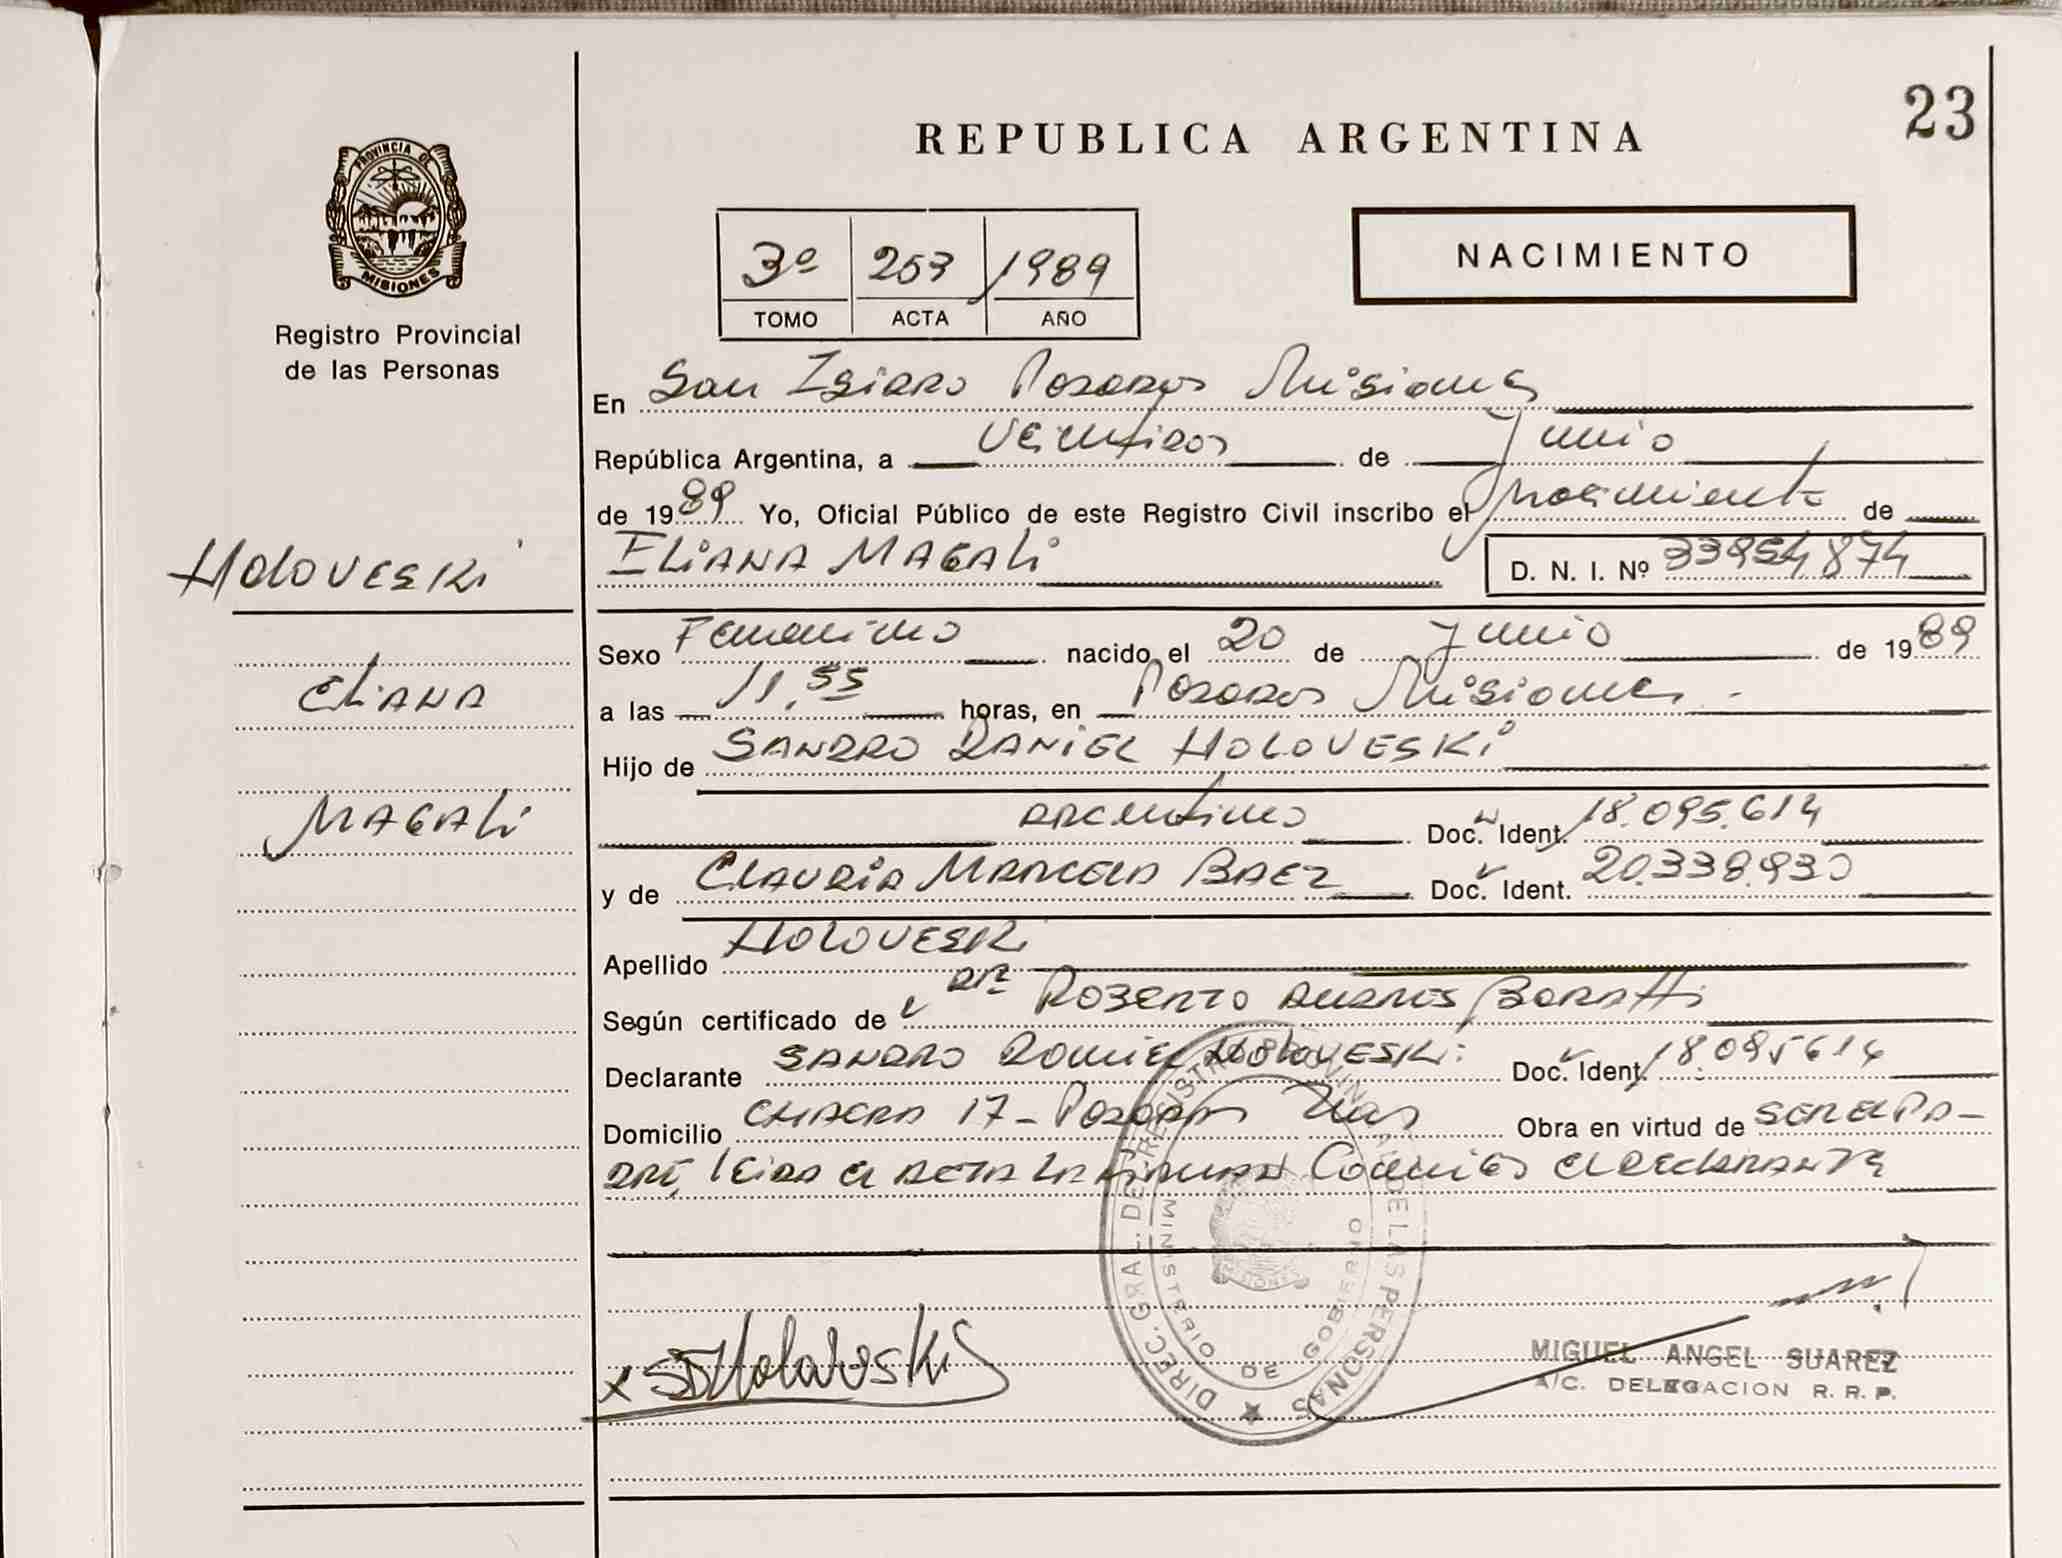 23
REPUBLICA ARGENTINA
PROVINCIA DE
MISIONES
Registro Provincial
de las Personas
3º 253 1989
TOMO ACTA AÑO
NACIMIENTO
En San Isidro Posadas Misiones
República Argentina, a veintidos de Junio
de 1989 Yo, Oficial Público de este Registro Civil inscribo el nacimiento de
HOLOVESKI
ELIANA MAGALI
D. N. I. Nº 33954874
Sexo Femenino nacido el 20 de Junio de 1989
ELIANA
a las 11,55 horas, en Posadas Misiones.
Hijo de SANDRO DANIEL HOLOVESKI
MAGALI
argentino Doc. Ident. 18.095.614
y de CLAUDIA MARCELA BAEZ Doc. Ident. 20.338.930
Apellido HOLOVESKI
Según certificado de DR. ROBERTO ANDRES
Declarante SANDRO DANIEL HOLOVESKI Doc. Ident. 18.095614
Domicilio CHACRA 17 - Posadas Mnes Obra en virtud de SER EL PA-
DRE, leida el ACTA LA FIRMAN Conmigo el DECLARANTE
DIREC. GRAL. DEL REGISTRO PROVINCIAL DE LAS PERSONAS
MINISTERIO DE GOBIERNO
x SDHoloveski
MIGUEL ANGEL SUAREZ
A/C. DELEGACION R. R. P.